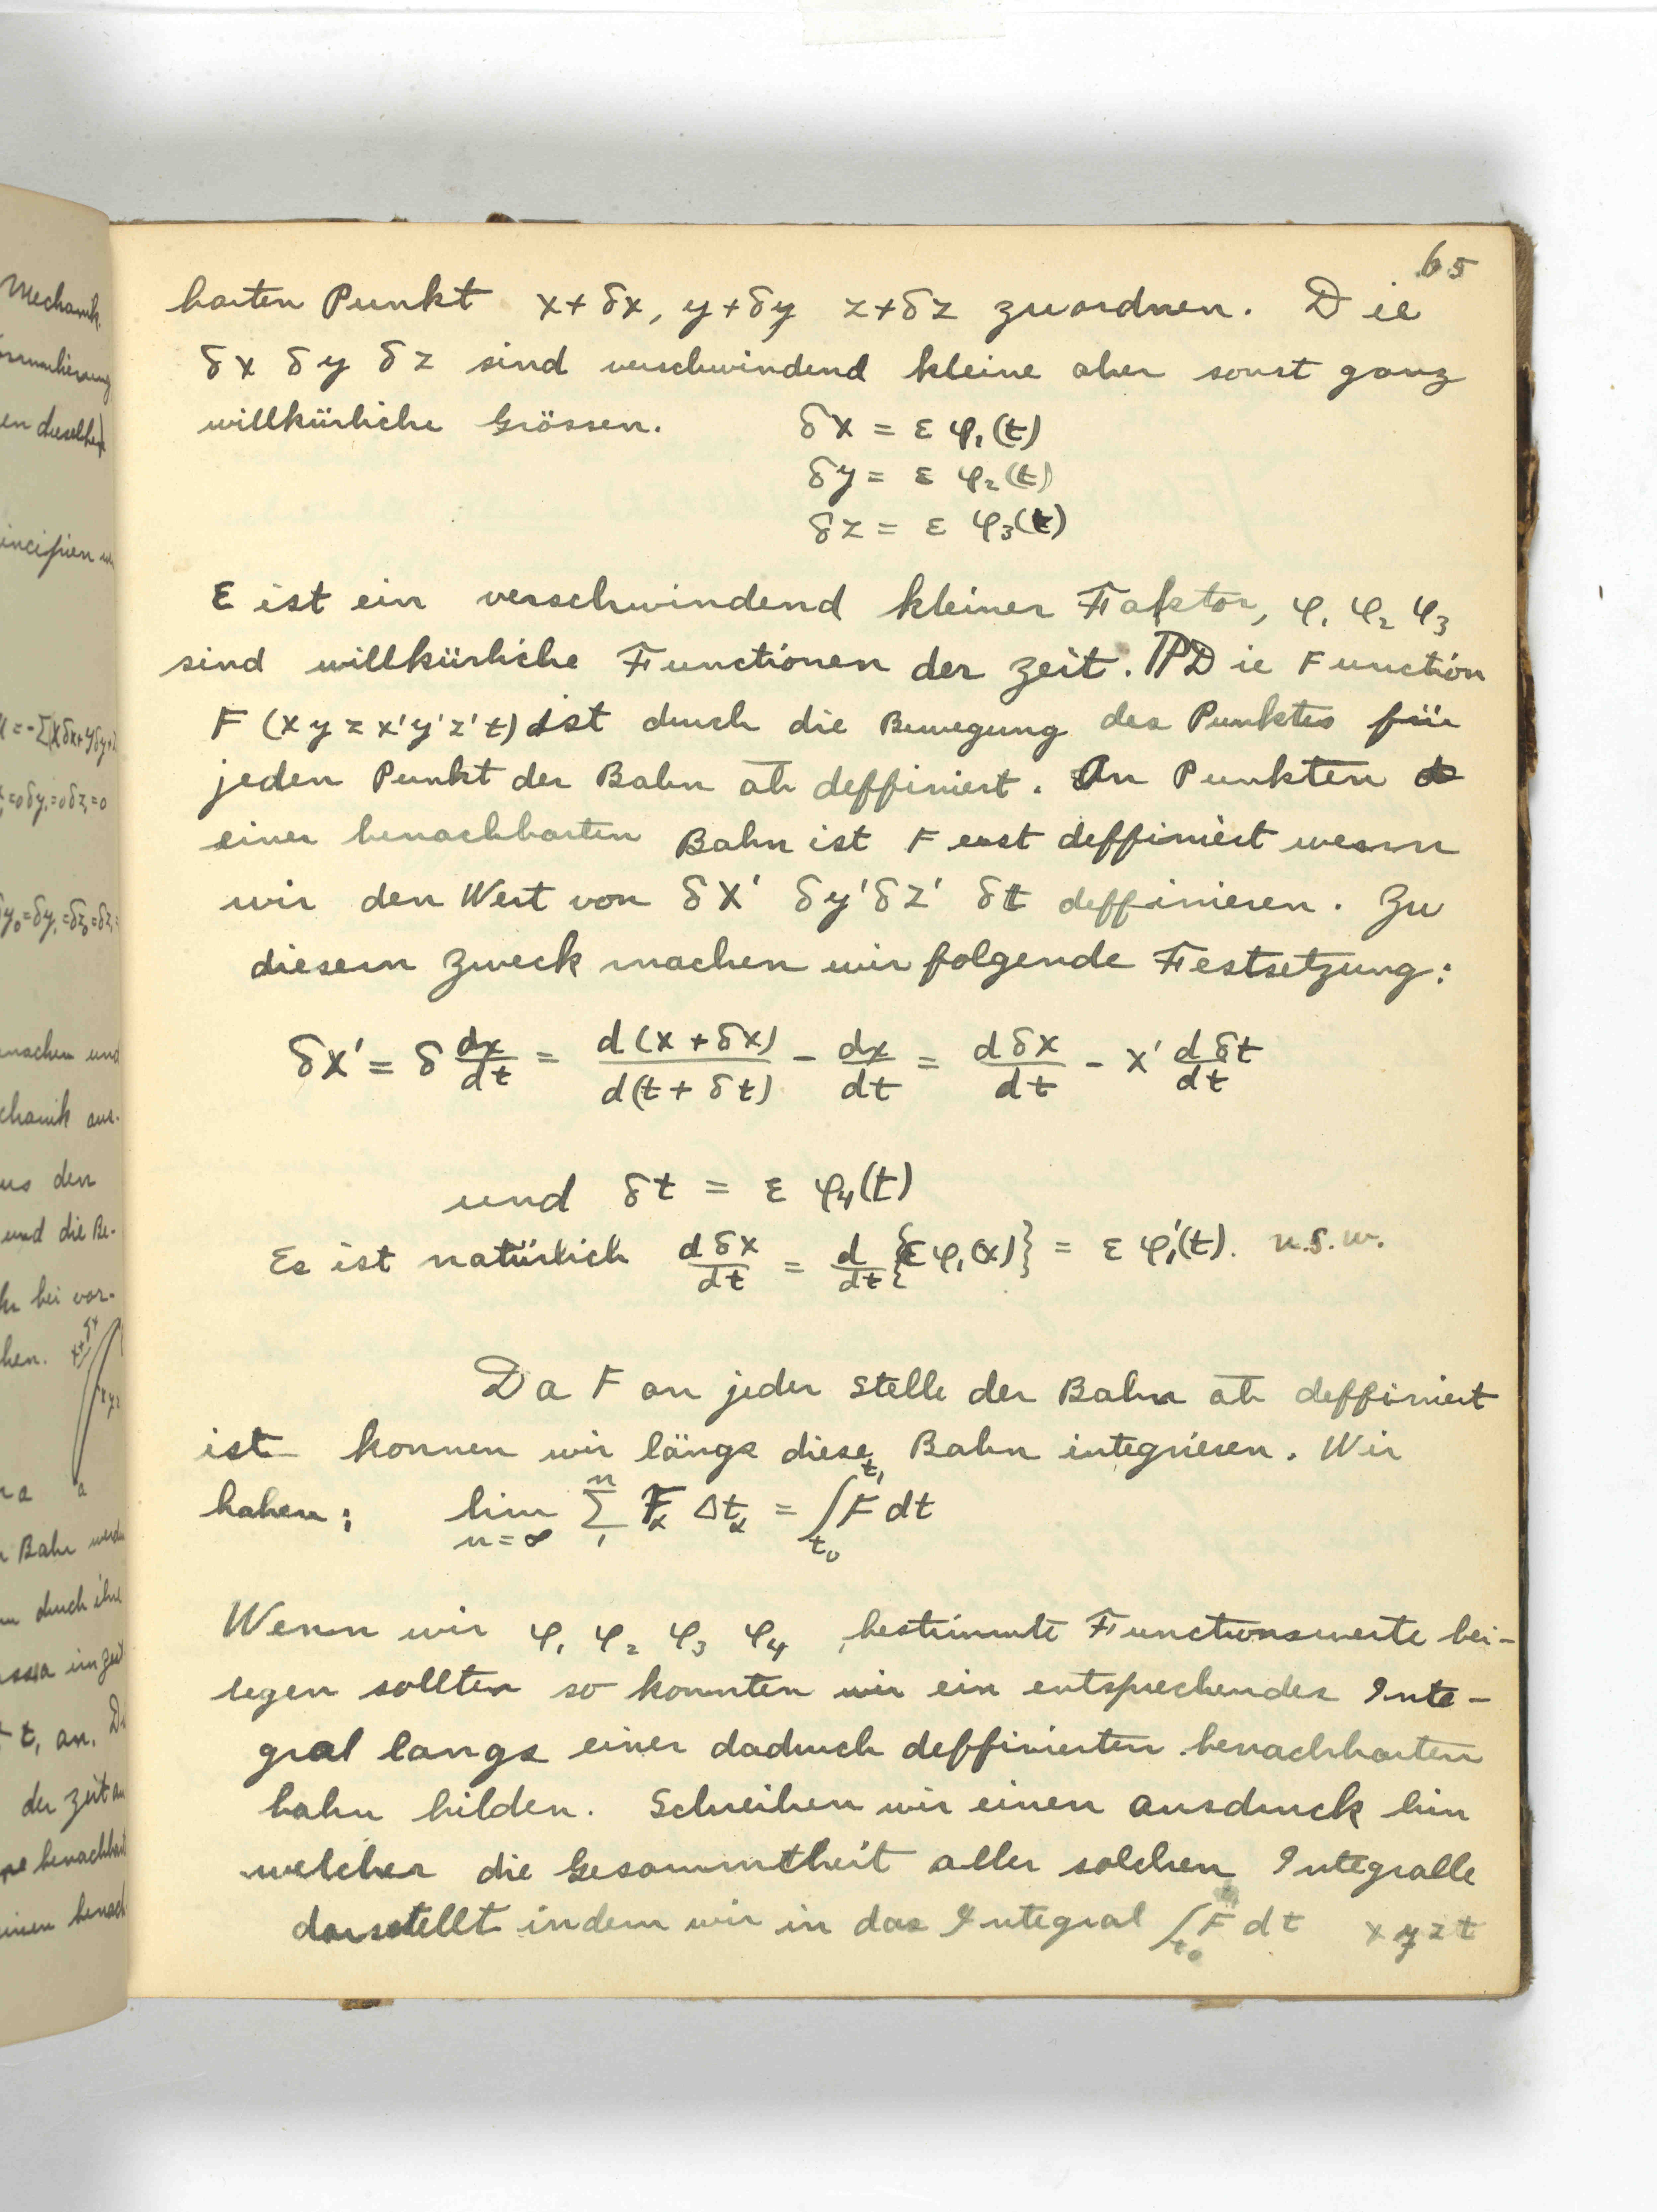 65
barten Punkt x+δx, y+δy z+δz zuordnen. Die
δx δy δz sind verschwindend kleine aber sonst ganz
willkürliche Grössen. δx = ε φ₁(t)
δy = ε φ₂(t)
δz = ε φ₃(t)
ε ist ein verschwindend kleiner Faktor, φ₁ φ₂ φ₃
sind willkürliche Functionen der Zeit. Die Function
F (x y z x' y' z' t) ist durch die Bewegung des Punktes für
jeden Punkt der Bahn ab deffiniert. An Punkten
einer benachbarten Bahn ist F erst deffiniert wenn
wir den Wert von δx' δy' δz' δt deffinieren. Zu
diesem Zweck machen wir folgende Festsetzung:
δx' = δ dx/dt = d(x + δx)/d(t + δt) - dx/dt = dδx/dt - x' dδt/dt
und δt = ε φ₄(t)
Es ist natürlich dδx/dt = d/dt {ε φ₁(x)} = ε φ₁'(t). u.s.w.
Da F an jeder Stelle der Bahn ab deffiniert
ist konnen wir längs diese Bahn integrieren. Wir
haben: lim n=∞ Σ₁ⁿ F_α Δt_α = ∫_{t₀}^{t₁} F dt
Wenn wir φ₁ φ₂ φ₃ φ₄ bestimmte Functionswerte bei-
legen sollten so konnten wir ein entsprechendes Inte-
gral langs einer dadurch deffinierten benachbarten
bahn bilden. Schreiben wir einen ausdruck hin
welcher die Gesammtheit aller solchen Integralle
darstellt indem wir in das Integral ∫_{t₀} F dt x y z t